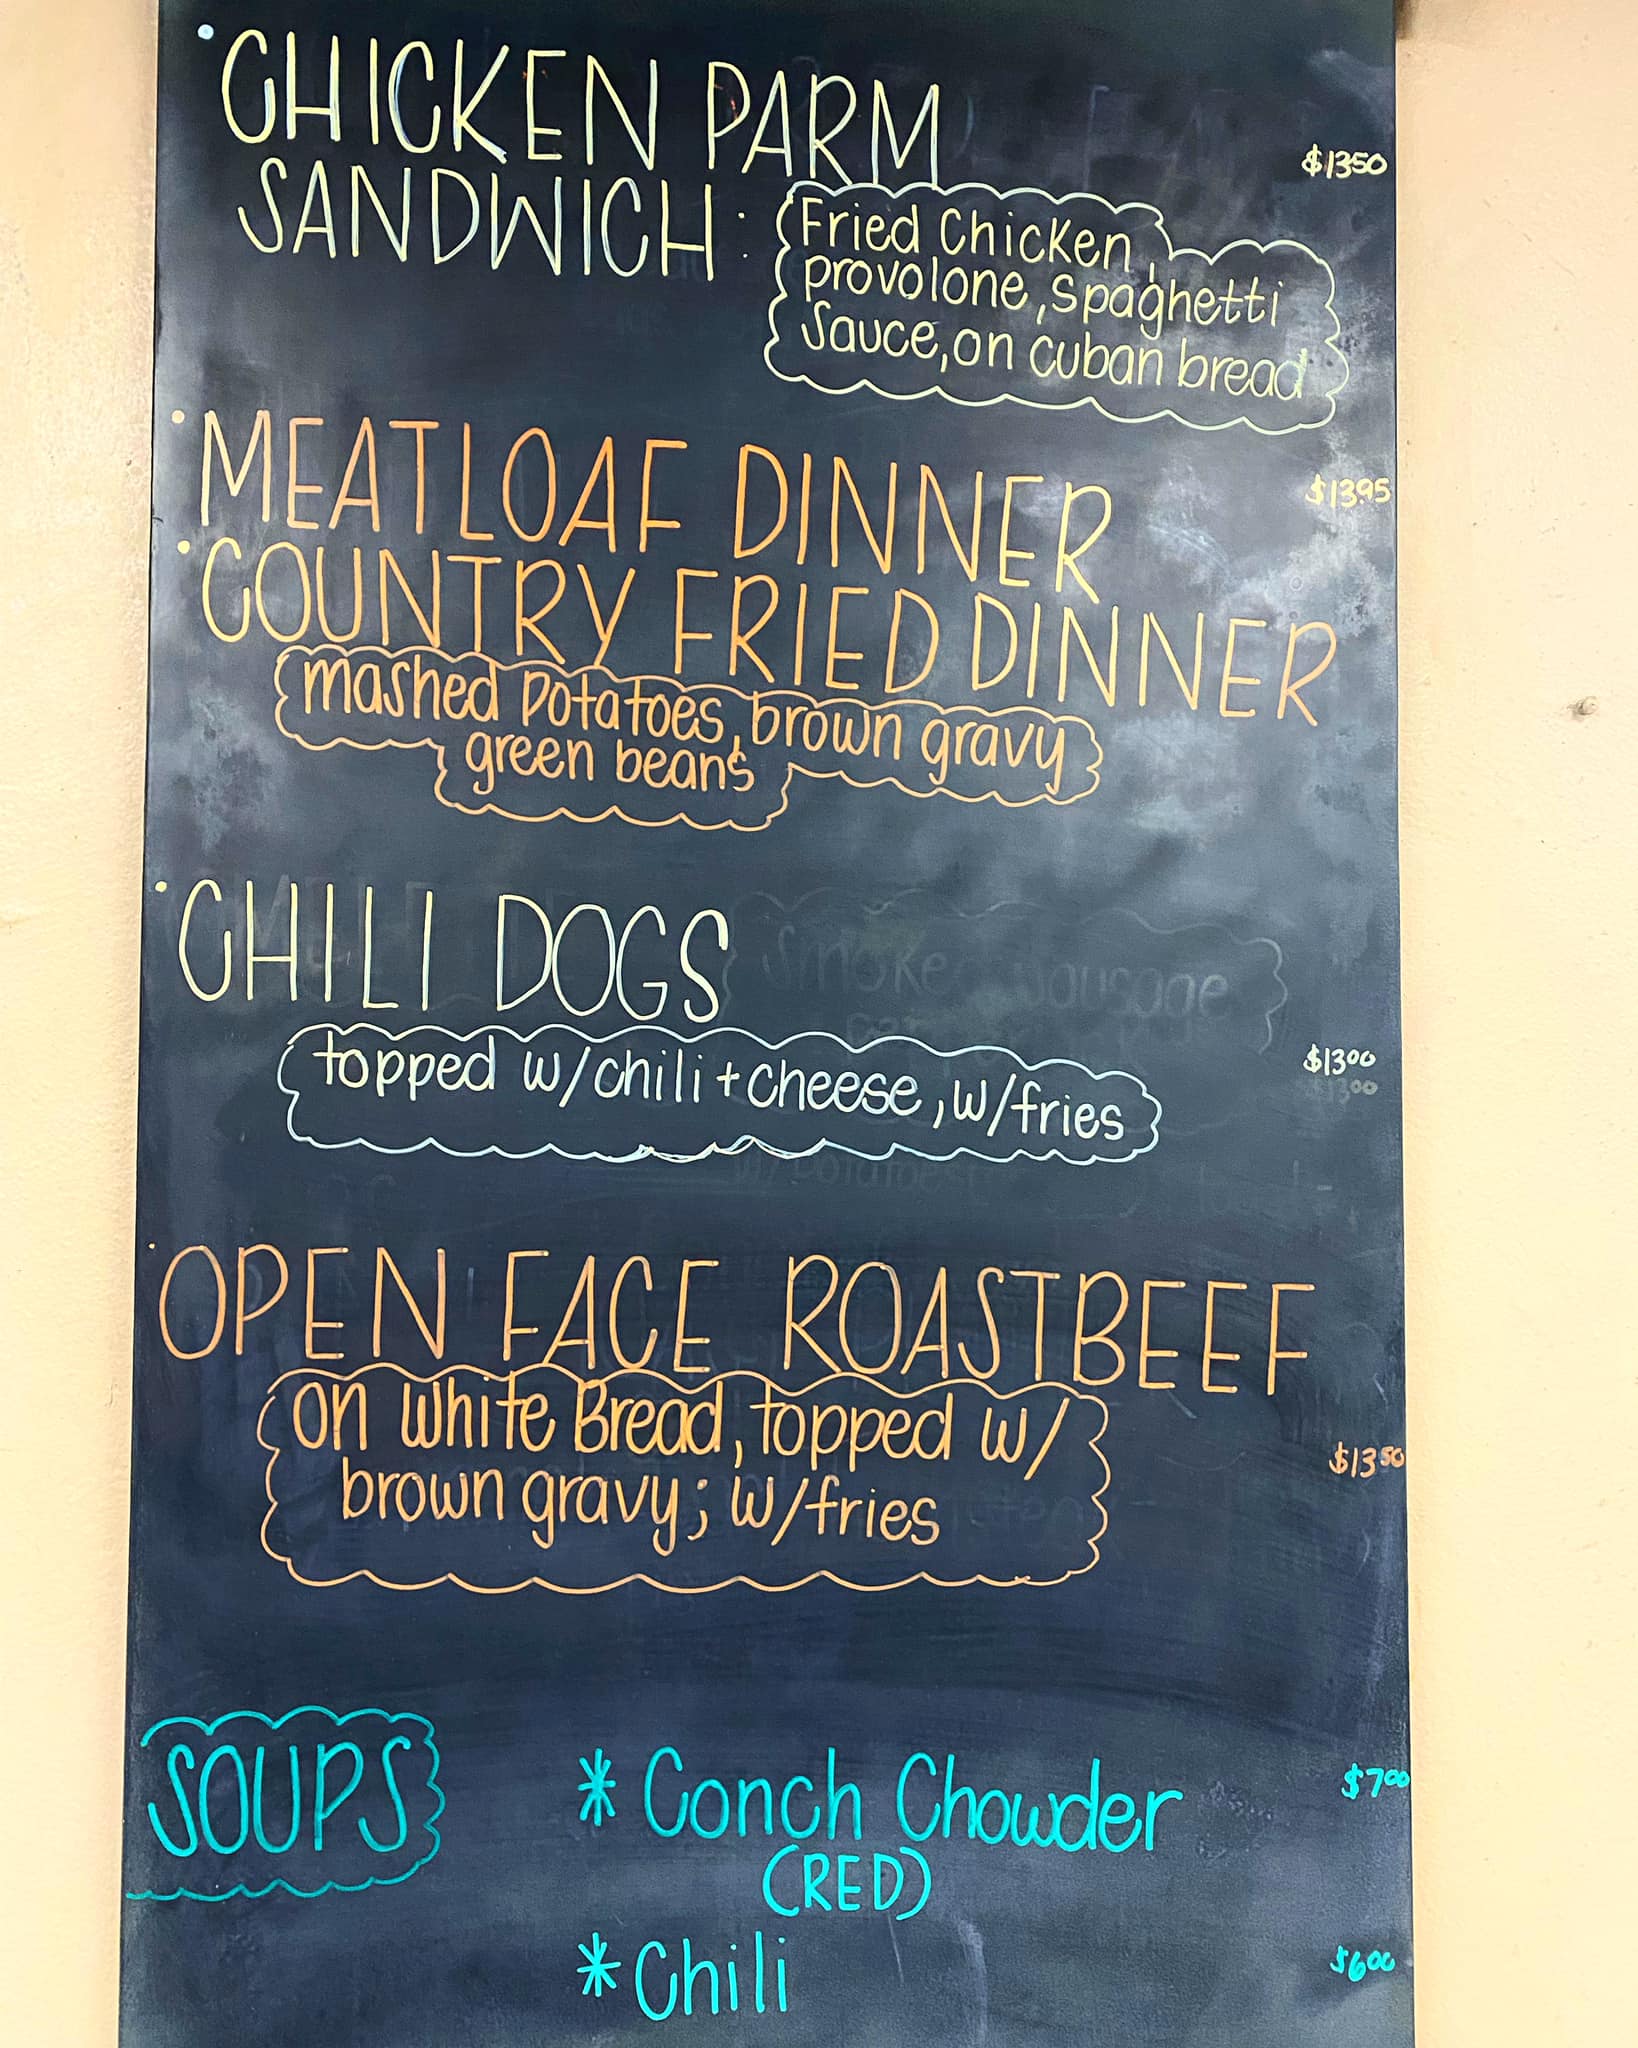 • CHICKEN PARM
$13.50
SANDWICH:
Fried Chicken,
provolone, spaghetti
sauce, on cuban bread
• MEATLOAF DINNER
$13.95
• COUNTRY FRIED DINNER
mashed potatoes, brown gravy
green beans
• CHILI DOGS
smoke sausage
topped w/chili + cheese, w/fries
$13.00
$13.00
w/potatoes
• OPEN FACE ROASTBEEF
on White Bread, topped w/
brown gravy; w/fries
$13.50
SOUPS
* Conch Chowder
$7.00
(RED)
* Chili
$6.00